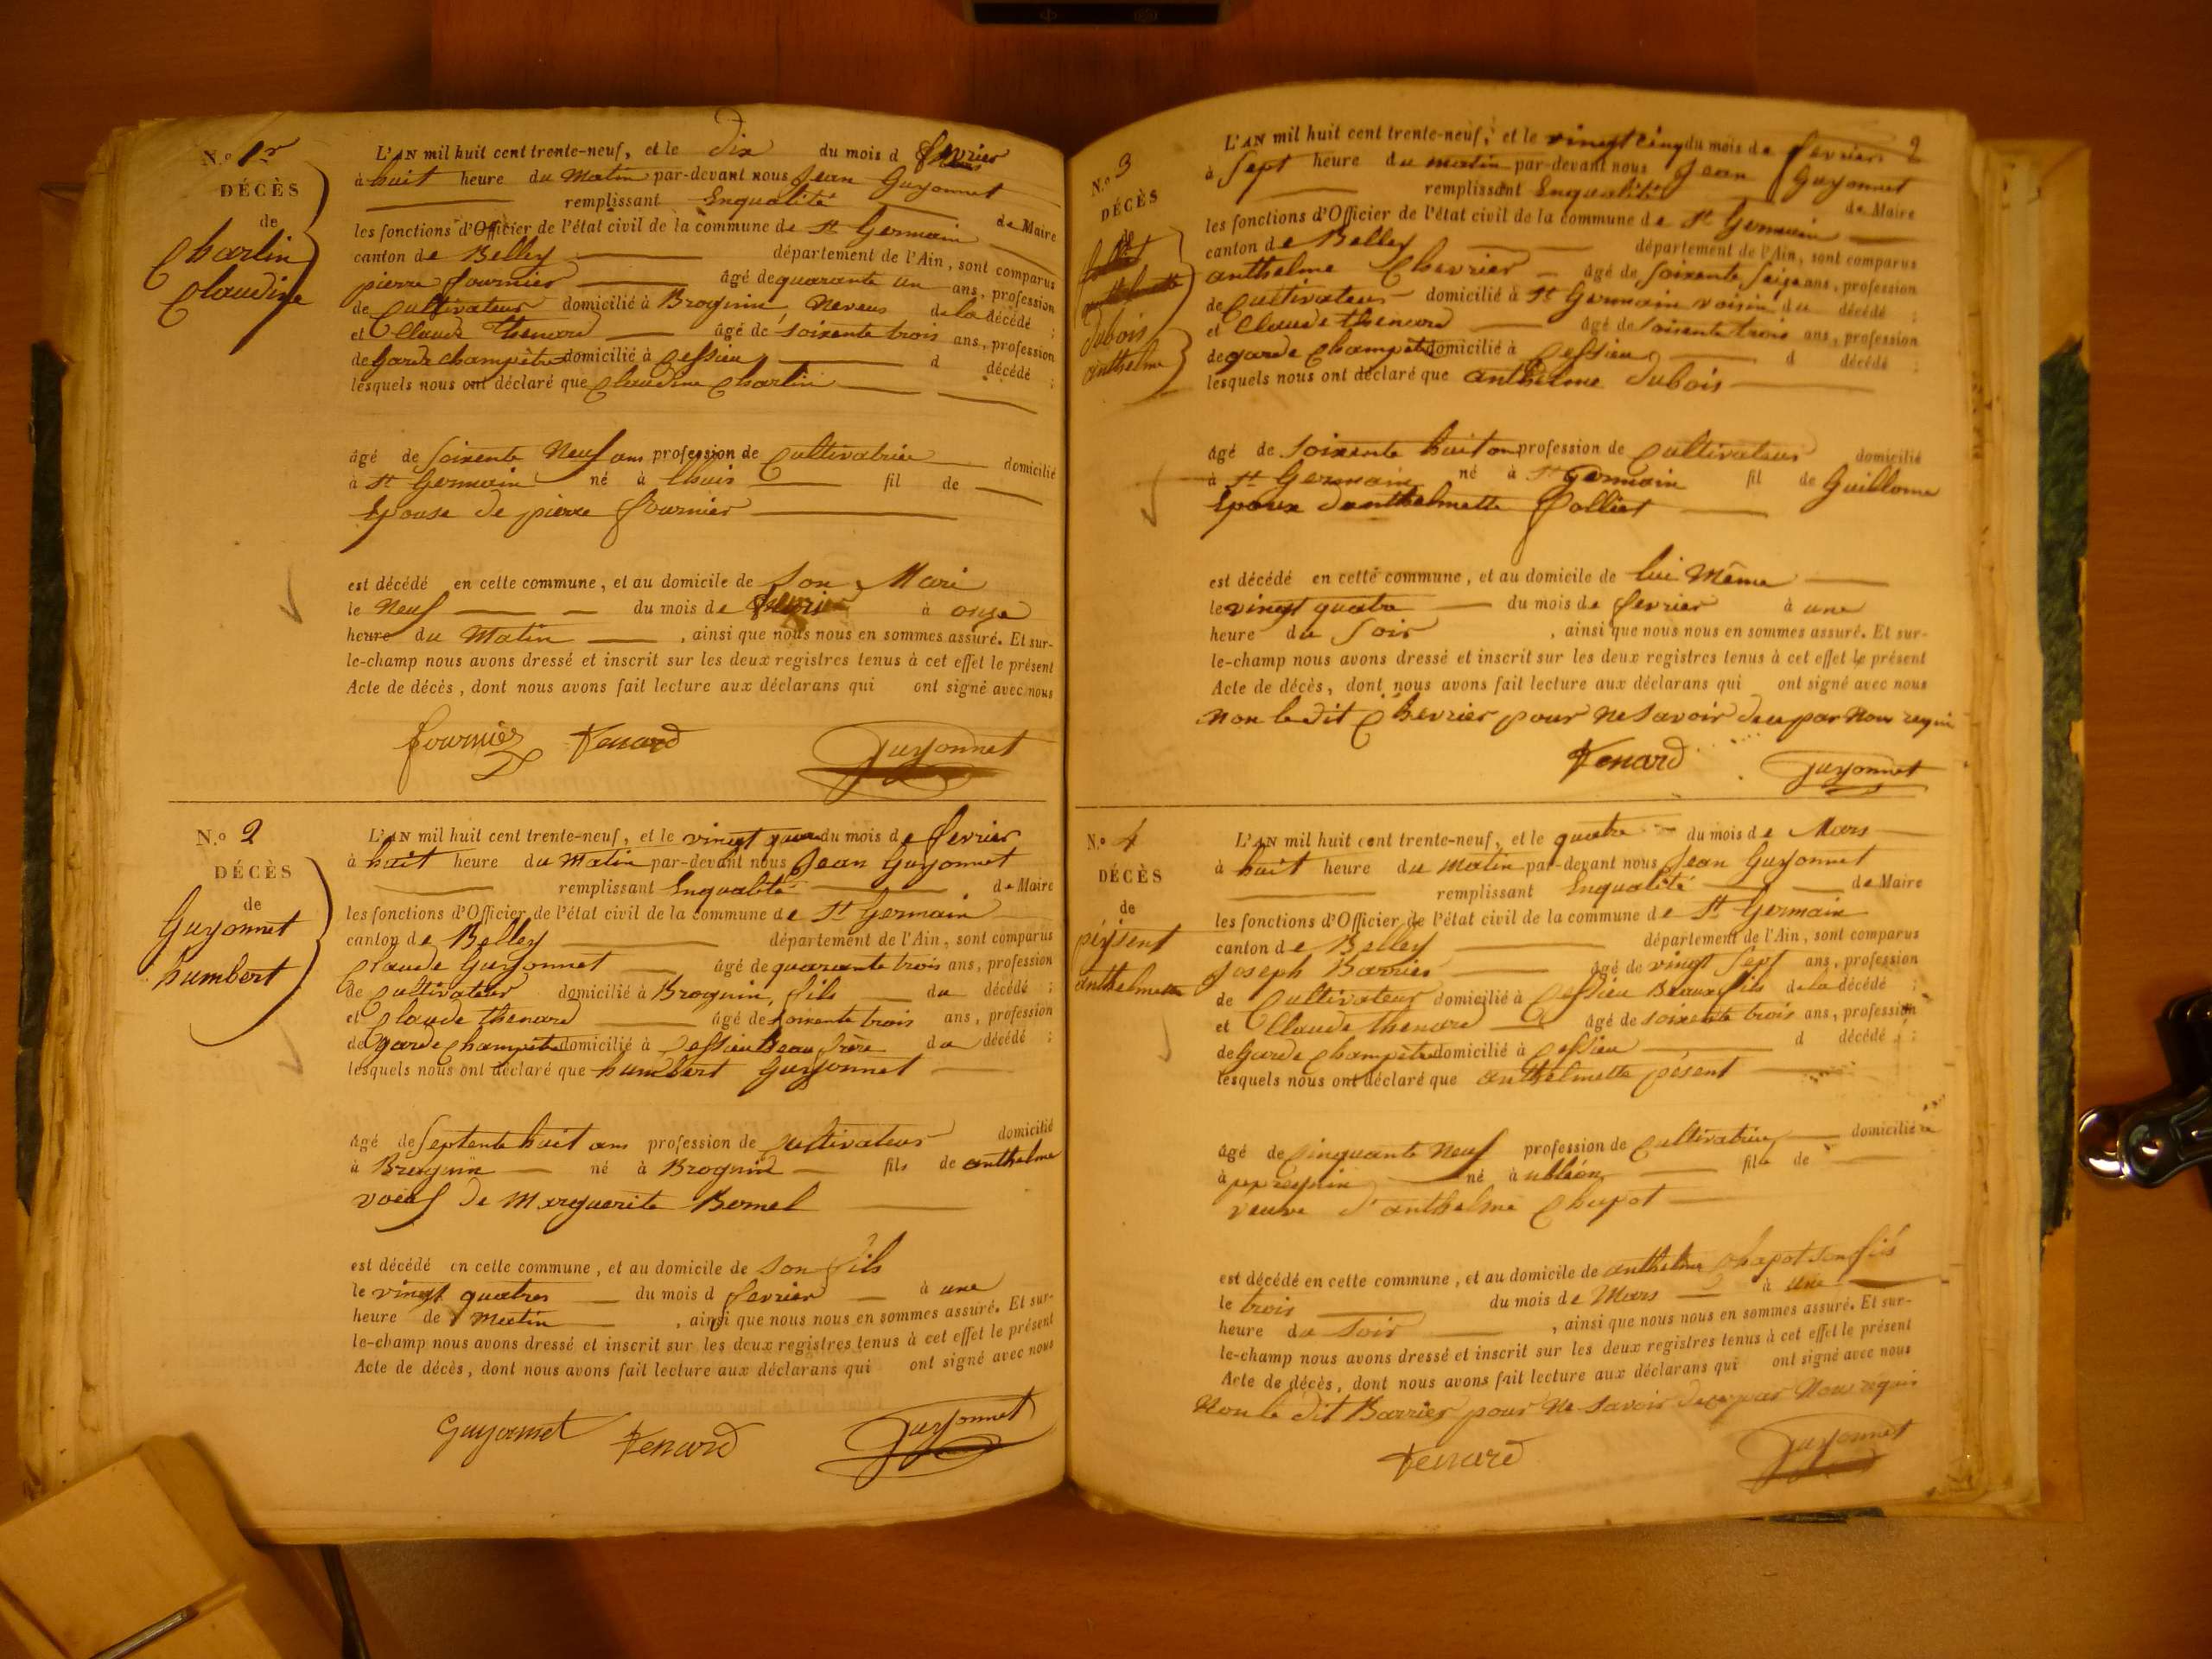 N.o 1er
DÉCÈS
de
Charlin
Claudine
L'AN mil huit cent trente-neuf, et le dix du mois d fevrier
à huit heure du Matin par-devant nous Jean Guyonnet
remplissant Enqualité de Maire
les fonctions d'Officier de l'état civil de la commune de St Germain
canton de Belley département de l'Ain, sont comparus
pierre fournier âgé de quarante un ans, profession
de Cultivateur domicilié à Brognin Neveus de la décédé ;
et Claude Thenard âgé de soixente trois ans, profession
de Garde champètre domicilié à Cessieu d décédé ;
lesquels nous ont déclaré que Claudine Charlin
âgé de soixente Neuf ans profession de Cultivatrice domicilié
à St Germain né à lhuis fil de
Epouse de pierre fournier
est décédé en cette commune, et au domicile de son Mari
le Neuf du mois de fevrier à onze
heure du Matin , ainsi que nous nous en sommes assuré. Et sur-
le-champ nous avons dressé et inscrit sur les deux registres tenus à cet effet le présent
Acte de décès, dont nous avons fait lecture aux déclarans qui ont signé avec nous
fournier Tenard Guyonnet
N.o 2
DÉCÈS
de
Guyonnet
humbert
L'AN mil huit cent trente-neuf, et le vingt du mois de fevrier
à huit heure du Matin par-devant nous Jean Guyonnet
remplissant Enqualité de Maire
les fonctions d'Officier de l'état civil de la commune de St Germain
canton de Belley département de l'Ain, sont comparus
Claude Guyonnet âgé de quarante trois ans, profession
de Cultivateur domicilié à Brognin, fils du décédé ;
et Claude Thenard âgé de soixente trois ans, profession
de garde champètre domicilié à Cessieu Beau frère du décédé ;
lesquels nous ont déclaré que humbert Guyonnet
âgé de septente huit ans profession de Cultivateur domicilié
à Brognin né à Brognin fils de anthelme
voeuf de Marguerite Bornel
est décédé en cette commune, et au domicile de son fils
le vingt quatres du mois d fevrier à une
heure de Matin , ainsi que nous nous en sommes assuré. Et sur-
le-champ nous avons dressé et inscrit sur les deux registres tenus à cet effet le présent
Acte de décès, dont nous avons fait lecture aux déclarans qui ont signé avec nous
Guyonnet Tenard Guyonnet
2
N.o 3
DÉCÈS
de
Dubois
anthelme
L'AN mil huit cent trente-neuf, et le vingt cinq du mois de fevrier
à sept heure du matin par-devant nous Jean Guyonnet
remplissant Enqualité de Maire
les fonctions d'Officier de l'état civil de la commune de St Germain
canton de Belley département de l'Ain, sont comparus
anthelme Chevrier âgé de soixente seize ans, profession
de Cultivateur domicilié à St Germain voisin du décédé ;
et Claude thenard âgé de soixente trois ans, profession
de garde champètre domicilié à Cessieu d décédé ;
lesquels nous ont déclaré que anthelme Dubois
âgé de soixente huit an profession de Cultivateur domicilié
à St Germain né à St Germain fil de Guillome
Epoux danthelmette follict
est décédé en cette commune, et au domicile de lui Même
le vingt quatre du mois de fevrier à une
heure du soir , ainsi que nous nous en sommes assuré. Et sur-
le-champ nous avons dressé et inscrit sur les deux registres tenus à cet effet le présent
Acte de décès, dont nous avons fait lecture aux déclarans qui ont signé avec nous
Non le dit Chevrier pour Ne savoir de ce par Nous requi
Tenard Guyonnet
N.o 4
DÉCÈS
de
péysent
anthelmette
L'AN mil huit cent trente-neuf, et le quatre du mois de Mars
à huit heure du matin par-devant nous Jean Guyonnet
remplissant Enqualité de Maire
les fonctions d'Officier de l'état civil de la commune de St Germain
canton de Belley département de l'Ain, sont comparus
Joseph Barrier âgé de vingt sept ans, profession
de Cultivateur domicilié à Cessieu Beaux fils de la décédé ;
et Claude Thenard âgé de soixente trois ans, profession
de Garde champètre domicilié à Cessieu d décédé ;
lesquels nous ont déclaré que anthelmette pésent
âgé de Cinquante Neuf profession de Cultivatrice domicilié
à né à fille de
veuve d'anthelme Chapot
est décédé en cette commune, et au domicile de anthelme chapot son fils
le trois du mois de Mars à une
heure du soir , ainsi que nous nous en sommes assuré. Et sur-
le-champ nous avons dressé et inscrit sur les deux registres tenus à cet effet le présent
Acte de décès, dont nous avons fait lecture aux déclarans qui ont signé avec nous
Non le dit Barrier pour Ne savoir de ce par Nous requis
Tenard Guyonnet